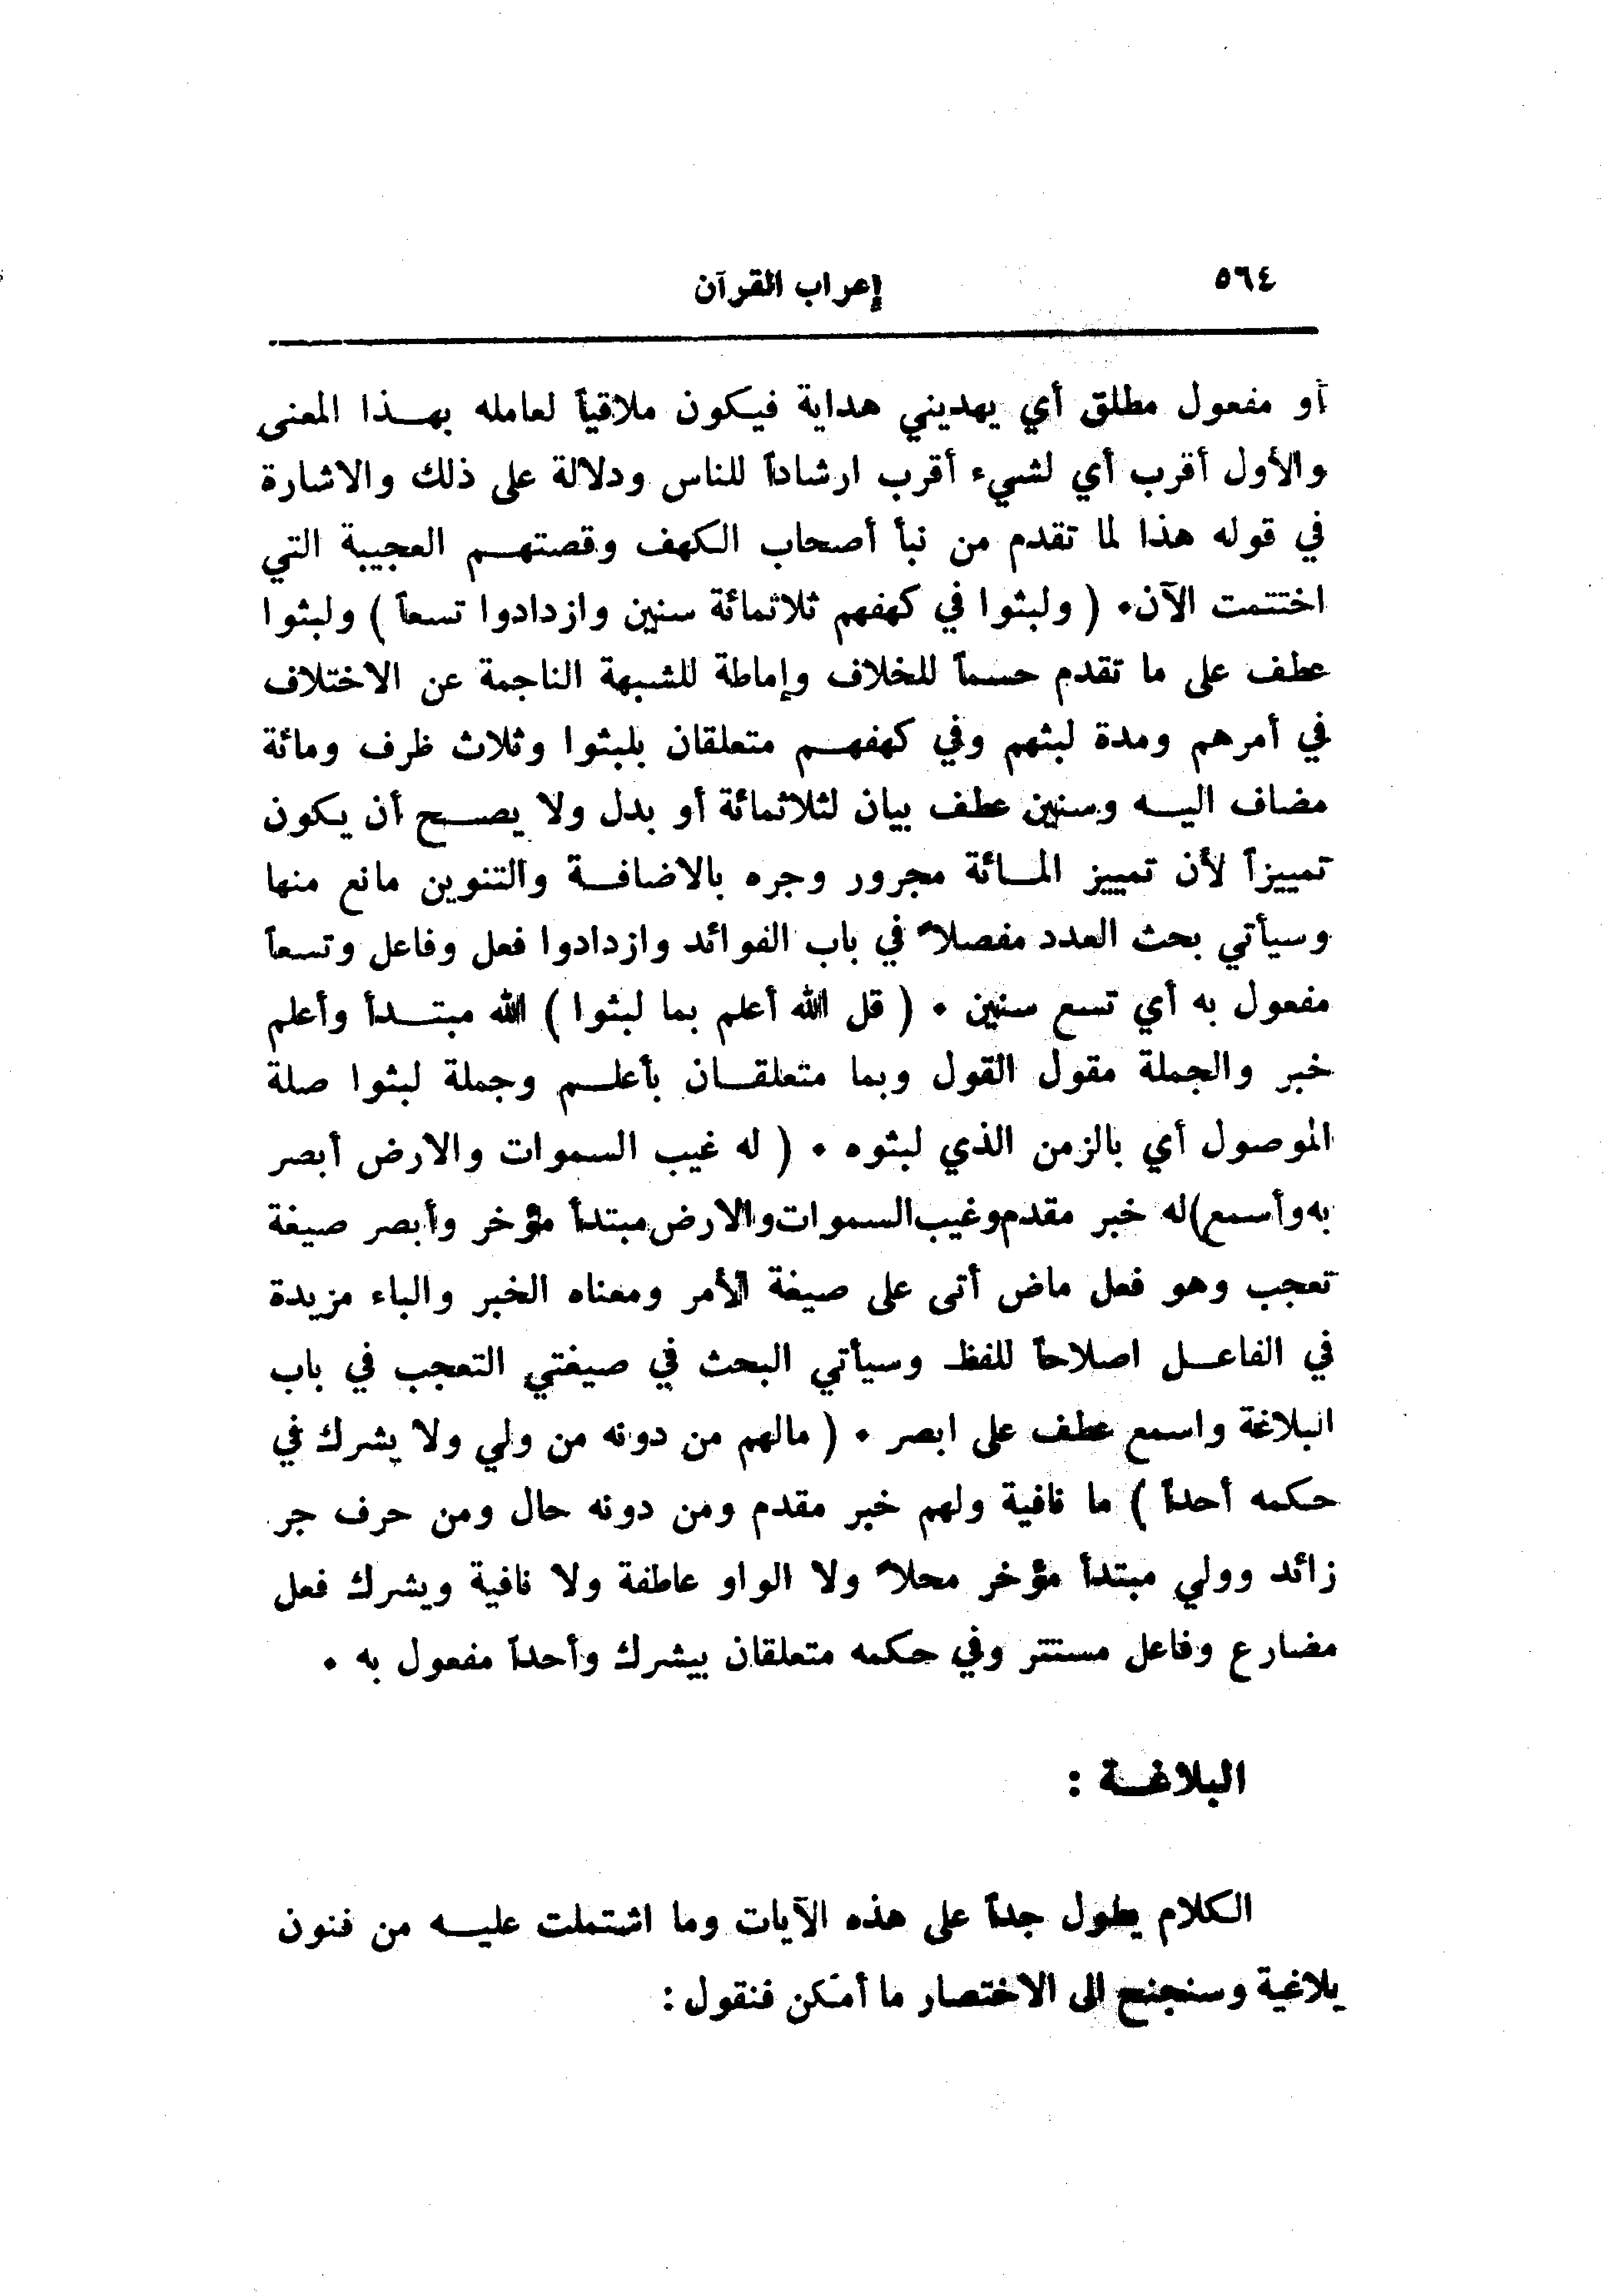 ٥٦٤ إعراب القرآن
أو مفعول مطلق أي يهديني هداية فيكون ملاقياً لعامله بهذا المعنى
والأول أقرب أي لشيء أقرب ارشاداً للناس ودلالة على ذلك والاشارة
في قوله هذا لما تقدم من نبأ أصحاب الكهف وقصتهم العجيبة التي
اختتمت الآن. ( ولبثوا في كهفهم ثلاثمائة سنين وازدادوا تسعاً ) ولبثوا
عطف على ما تقدم حسماً للخلاف وإماطة للشبهة الناجمة عن الاختلاف
في أمرهم ومدة لبثهم وفي كهفهم متعلقان بلبثوا وثلاث ظرف ومائة
مضاف اليه وسنين عطف بيان لثلاثمائة أو بدل ولا يصح أن يكون
تمييزاً لأن تمييز المائة مجرور وجره بالاضافة والتنوين مانع منها
وسيأتي بحث العدد مفصلاً في باب الفوائد وازدادوا فعل وفاعل وتسعاً
مفعول به أي تسع سنين . ( قل الله أعلم بما لبثوا ) الله مبتدأ وأعلم
خبر والجملة مقول القول وبما متعلقان بأعلم وجملة لبثوا صلة
الموصول أي بالزمن الذي لبثوه . ( له غيب السموات والارض أبصر
به وأسمع) له خبر مقدم وغيب السموات والارض مبتدأ مؤخر وأبصر صيغة
تعجب وهو فعل ماض أتى على صيغة الأمر ومعناه الخبر والباء مزيدة
في الفاعل اصلاحاً للفظ وسيأتي البحث في صيغتي التعجب في باب
البلاغة واسمع عطف على ابصر . ( مالهم من دونه من ولي ولا يشرك في
حكمه أحداً ) ما نافية ولهم خبر مقدم ومن دونه حال ومن حرف جر
زائد وولي مبتدأ مؤخر محلاً ولا الواو عاطفة ولا نافية ويشرك فعل
مضارع وفاعل مستتر وفي حكمه متعلقان بيشرك وأحداً مفعول به .
البلاغة :
الكلام يطول جداً على هذه الآيات وما اشتملت عليه من فنون
بلاغية وسنجنح الى الاختصار ما أمكن فنقول :